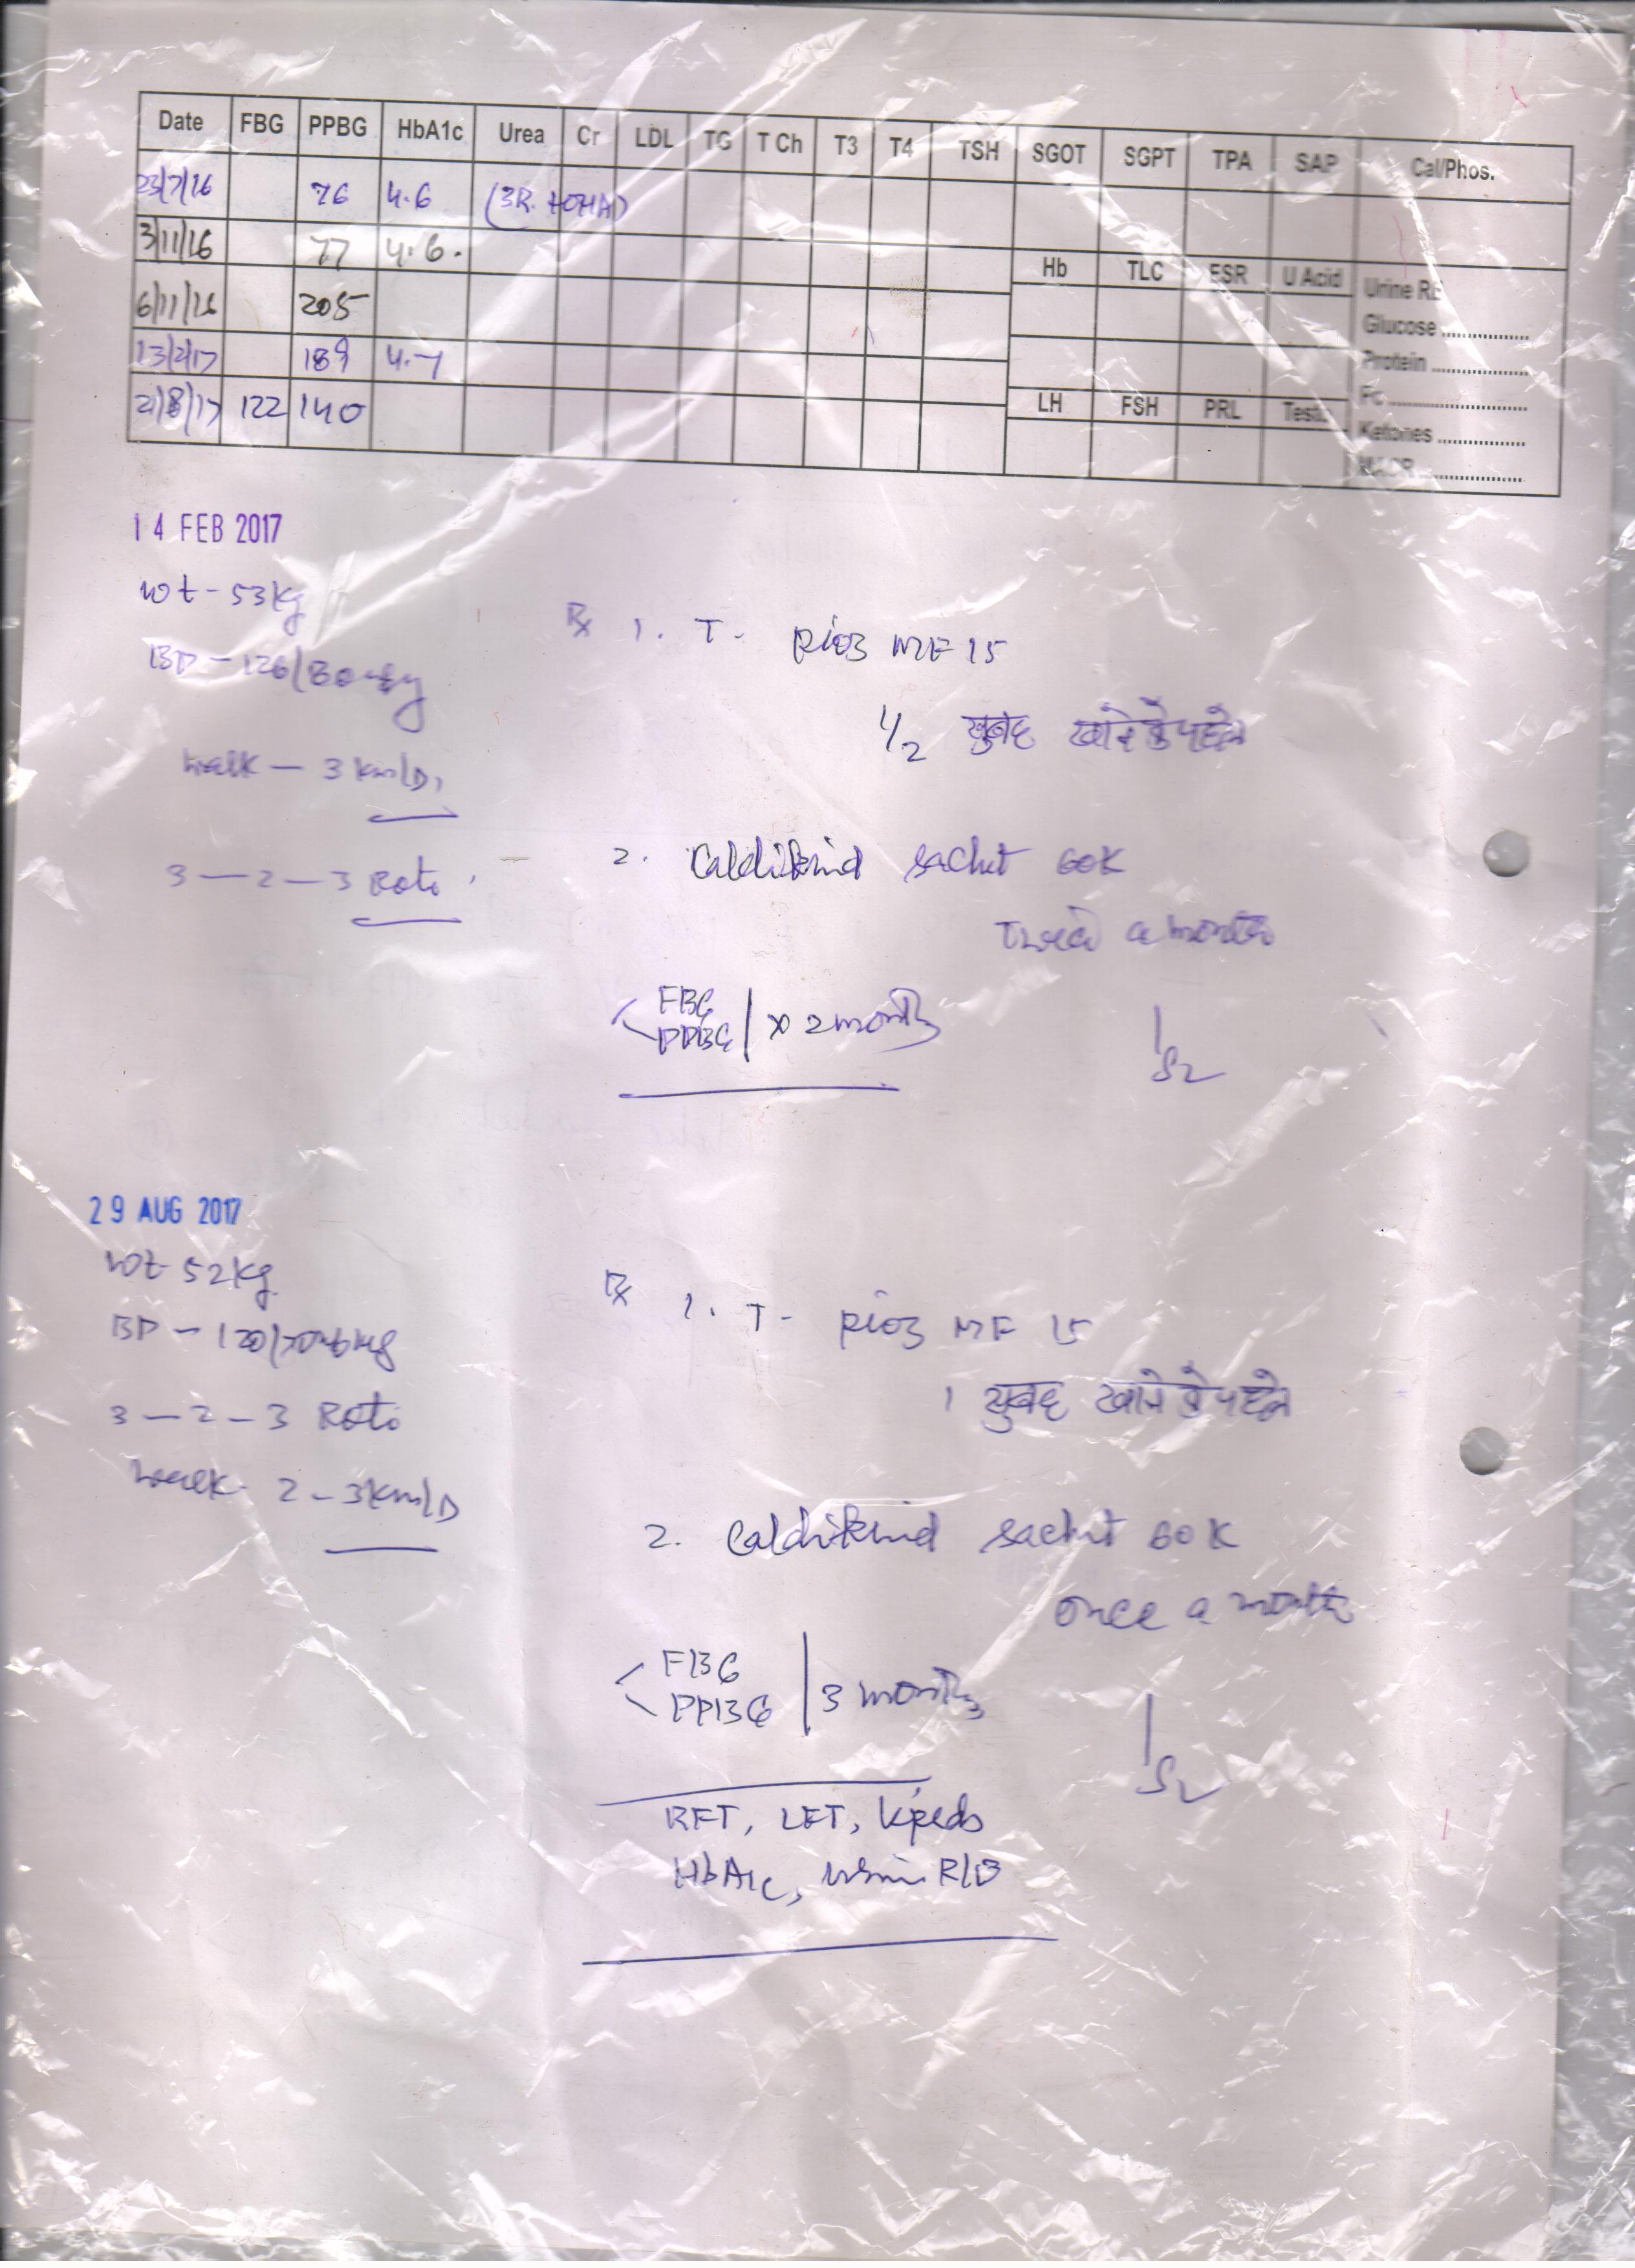 Date FBG PPBG HbA1c Urea Cr LDL TG T Ch T3 T4 TSH SGOT SGPT TPA SAP Cal/Phos.
23/7/16 76 4.6
3/11/16 77 4.6.
Hb TLC ESR U Acid Urine R
6/11/16 205
Glucose
13/2/17 189 4.7
Protein
21/8/17 122 140
LH FSH PRL Test.
Ketones
14 FEB 2017
wt - 53kg
Rx 1. T- Rioz MF 15
BP - 126/80
1/2 सुबह खाने के पहले
walk - 3 km/D,
2. Caldikind sachet 60K
3 - 2 - 3 Roti
twice a month
FBG
PPBG x 2 month
29 AUG 2017
wt 52kg
Rx 1. T- Rioz MF 15
BP - 120/70
1 सुबह खाने के पहले
3 - 2 - 3 Roti
walk. 2 - 3km/D
2. Caldikind sachet 60K
once a month
FBG
PPBG 3 month
RFT, LFT, Lipids
HbA1c, urine R/